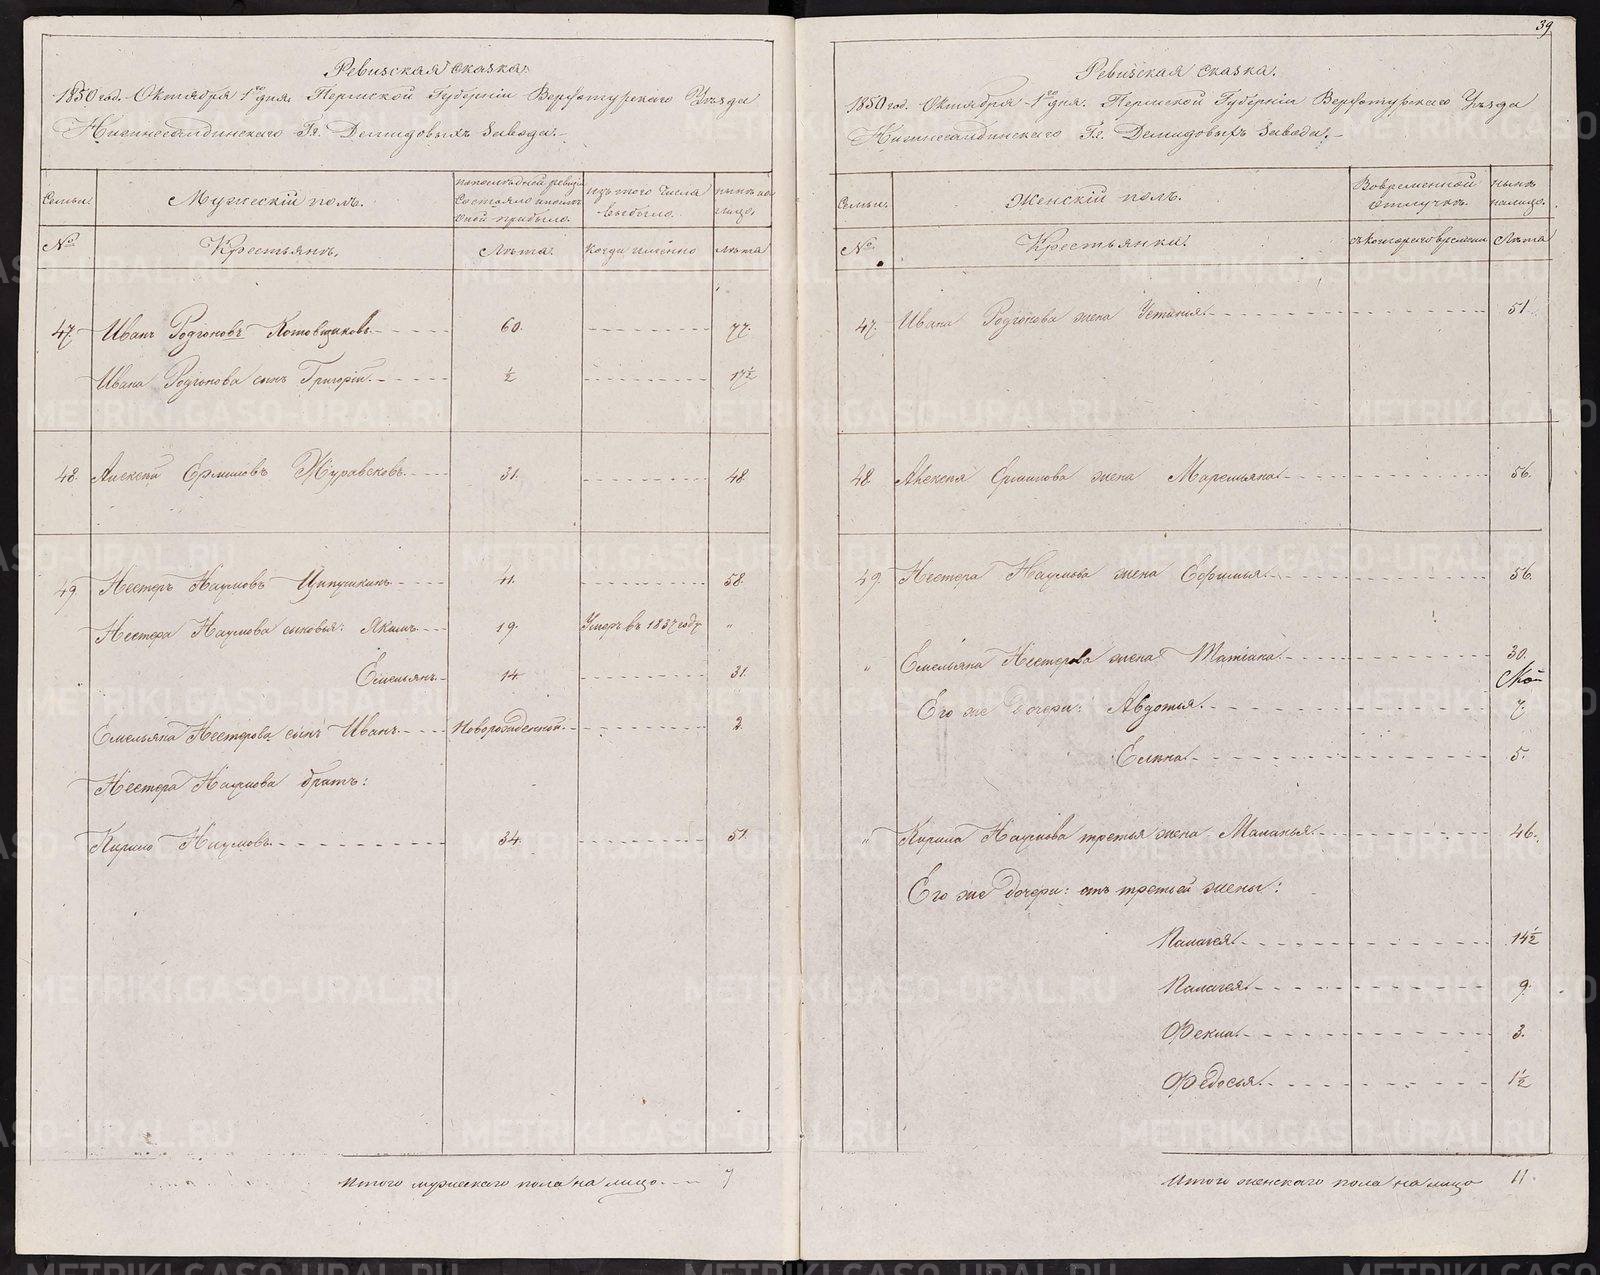 Ревизская сказка.
1850 год. Октября 1го дня. Пермской Губерніи Верхотурскаго Уѣзда
Нижнесалдинскаго Гг. Демидовыхъ Завода.
Семьи. Мужескій полъ. По последней ревизіи состояло и после оной прибыло. Изъ того числа выбыло. Нынѣ на лицо.
№ Крестьянъ. Лѣта. Когда именно Лѣта
47. Иванъ Родіоновъ Котовщиковъ 60. 77.
Ивана Родіонова сынъ Григорій. ½ 17½
48. Алексѣй Ермиловъ Журавсковъ. 31. 48.
49 Нестеръ Наумовъ Ципушкинъ 41. 58.
Нестера Наумова сыновья: Якимъ 19. Умеръ въ 1837 году "
Емельянъ. 14 31.
Емельяна Нестерова сынъ Иванъ. Новорожденной. 2
Нестера Наумова братъ:
Кирило Наумовъ. 34. 51.
Итого мужескаго пола на лицо 7
39
Ревизская сказка.
1850 год. Октября 1го дня. Пермской Губерніи Верхотурскаго Уѣзда
Нижнесалдинскаго Гг. Демидовыхъ Завода.
Семьи. Женскій полъ. Во временной отлучкѣ. Нынѣ налицо.
№ Крестьянки. Съ котораго времени Лѣта
47. Ивана Родіонова жена Устинія. 51.
48. Алексѣя Ермилова жена Маремьяна. 56.
49. Нестера Наумова жена Ефимья. 56.
" Емельяна Нестерова жена Матіана. 30.
Его же дочери: Авдотья. 7.
Елена. 5.
" Кирила Наумова третья жена Маланья. 46.
Его же дочери: отъ третьей жены:
Палагея. 14½
Палагея. 9.
Фекла. 3.
Федосья. 1½
Итого женскаго пола на лицо 11.
METRIKI.GASO-URAL.RU